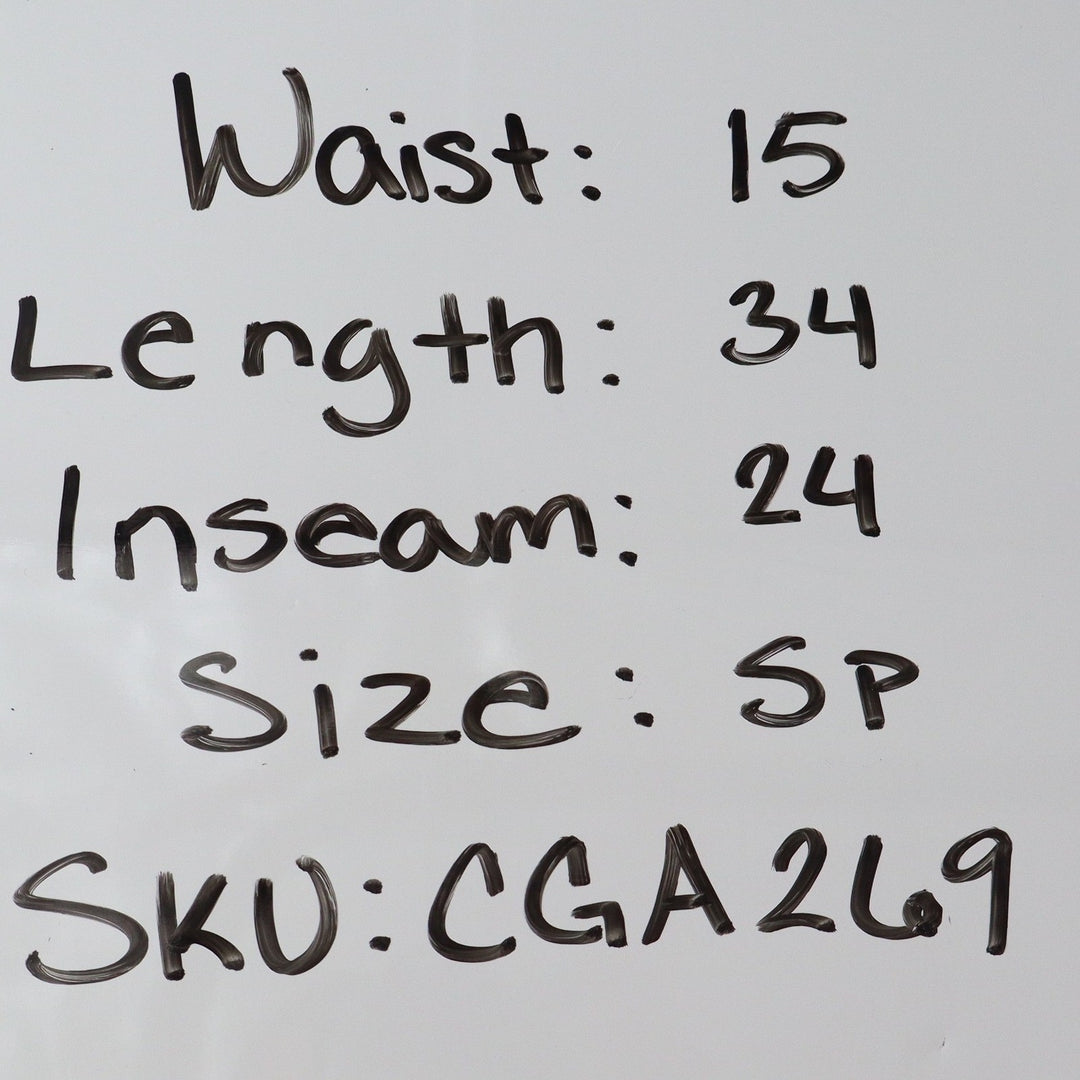 Waist: 15
Length: 34
Inseam: 24
Size: SP
SKU: CGA269